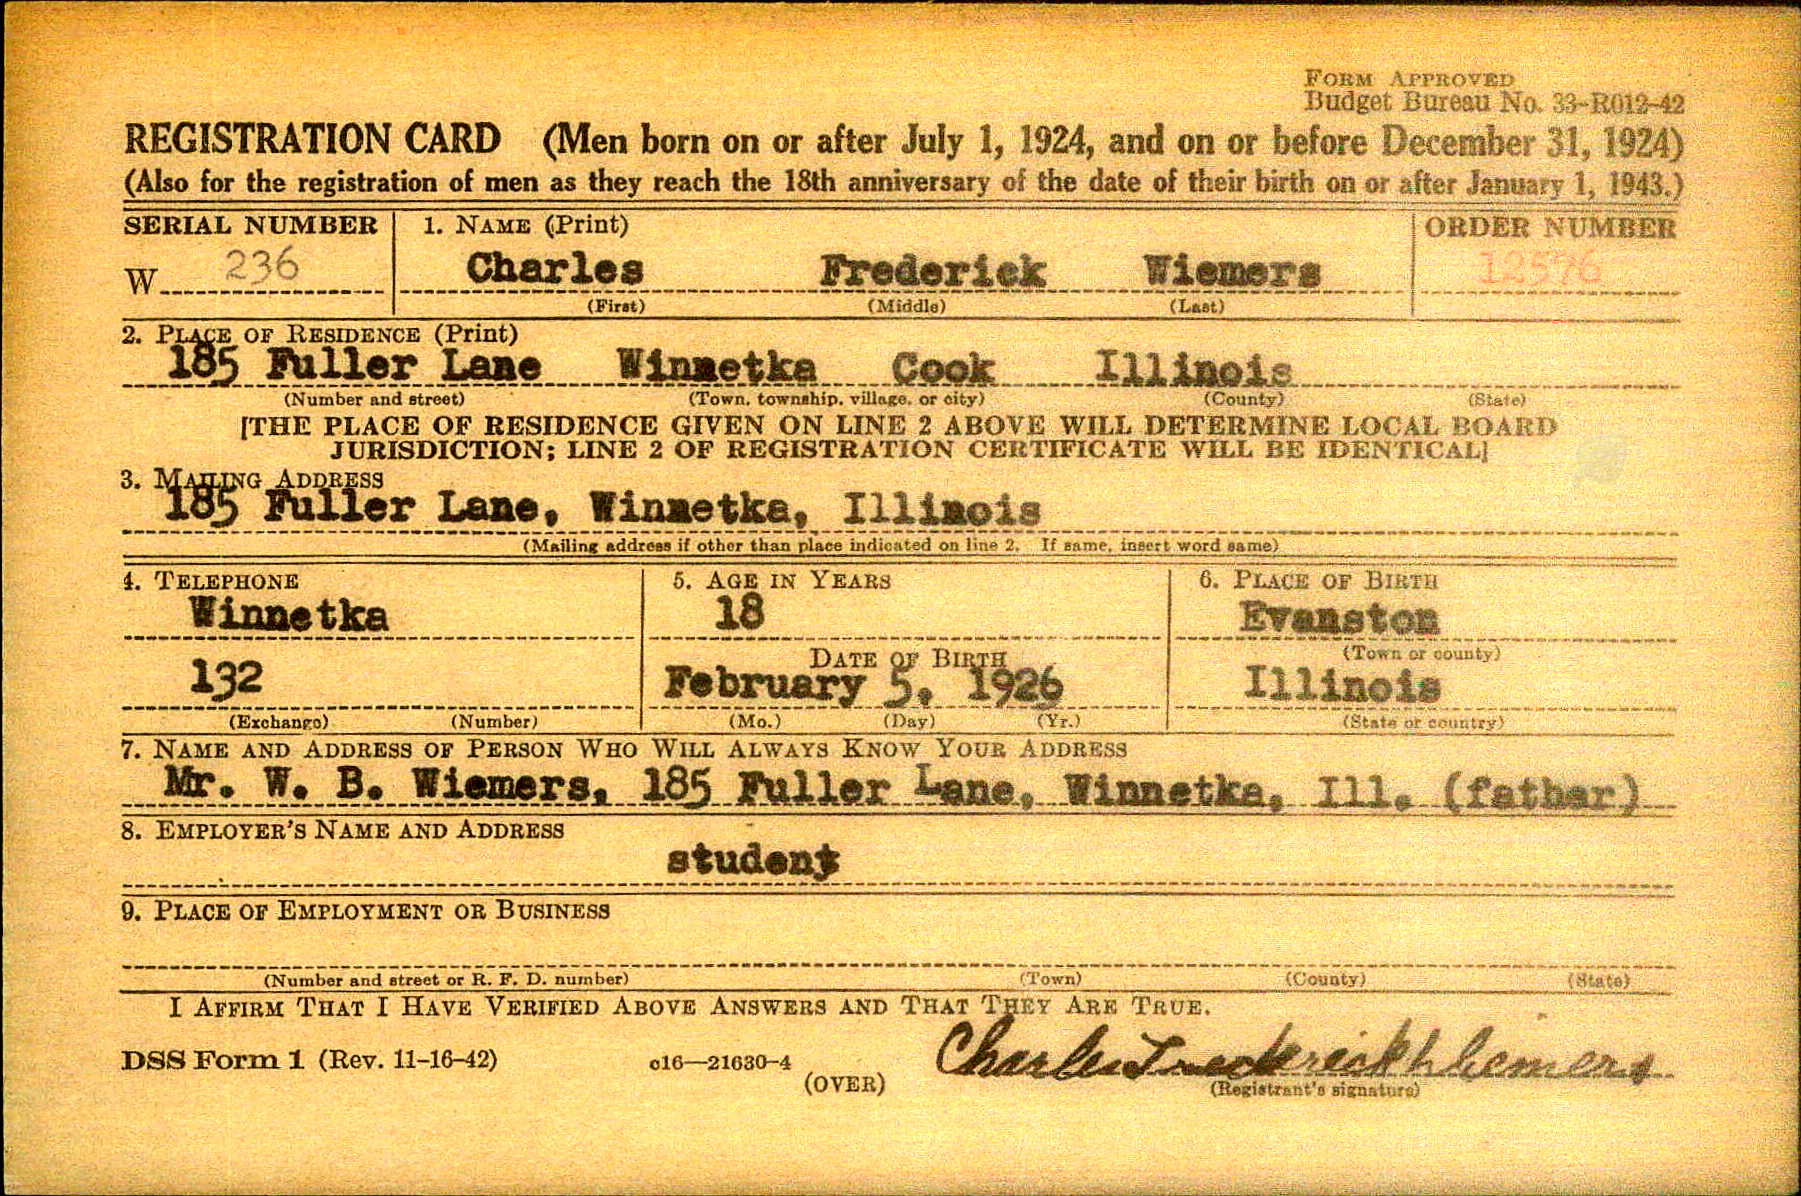 FORM APPROVED
Budget Bureau No. 33-R012-42
REGISTRATION CARD (Men born on or after July 1, 1924, and on or before December 31, 1924)
(Also for the registration of men as they reach the 18th anniversary of the date of their birth on or after January 1, 1943.)
SERIAL NUMBER 1. NAME (Print) ORDER NUMBER
W 236 Charles Frederick Wiemers 12576
(First) (Middle) (Last)
2. PLACE OF RESIDENCE (Print)
185 Fuller Lane Winnetka Cook Illinois
(Number and street) (Town, township, village, or city) (County) (State)
[THE PLACE OF RESIDENCE GIVEN ON LINE 2 ABOVE WILL DETERMINE LOCAL BOARD
JURISDICTION; LINE 2 OF REGISTRATION CERTIFICATE WILL BE IDENTICAL]
3. MAILING ADDRESS
185 Fuller Lane, Winnetka, Illinois
(Mailing address if other than place indicated on line 2. If same, insert word same)
4. TELEPHONE 5. AGE IN YEARS 6. PLACE OF BIRTH
Winnetka 18 Evanston
DATE OF BIRTH (Town or county)
132 February 5, 1926 Illinois
(Exchange) (Number) (Mo.) (Day) (Yr.) (State or country)
7. NAME AND ADDRESS OF PERSON WHO WILL ALWAYS KNOW YOUR ADDRESS
Mr. W. B. Wiemers, 185 Fuller Lane, Winnetka, Ill. (father)
8. EMPLOYER'S NAME AND ADDRESS
student
9. PLACE OF EMPLOYMENT OR BUSINESS
(Number and street or R. F. D. number) (Town) (County) (State)
I AFFIRM THAT I HAVE VERIFIED ABOVE ANSWERS AND THAT THEY ARE TRUE.
DSS Form 1 (Rev. 11-16-42) c16—21630-4 Charles Frederick Wiemers
(OVER) (Registrant's signature)